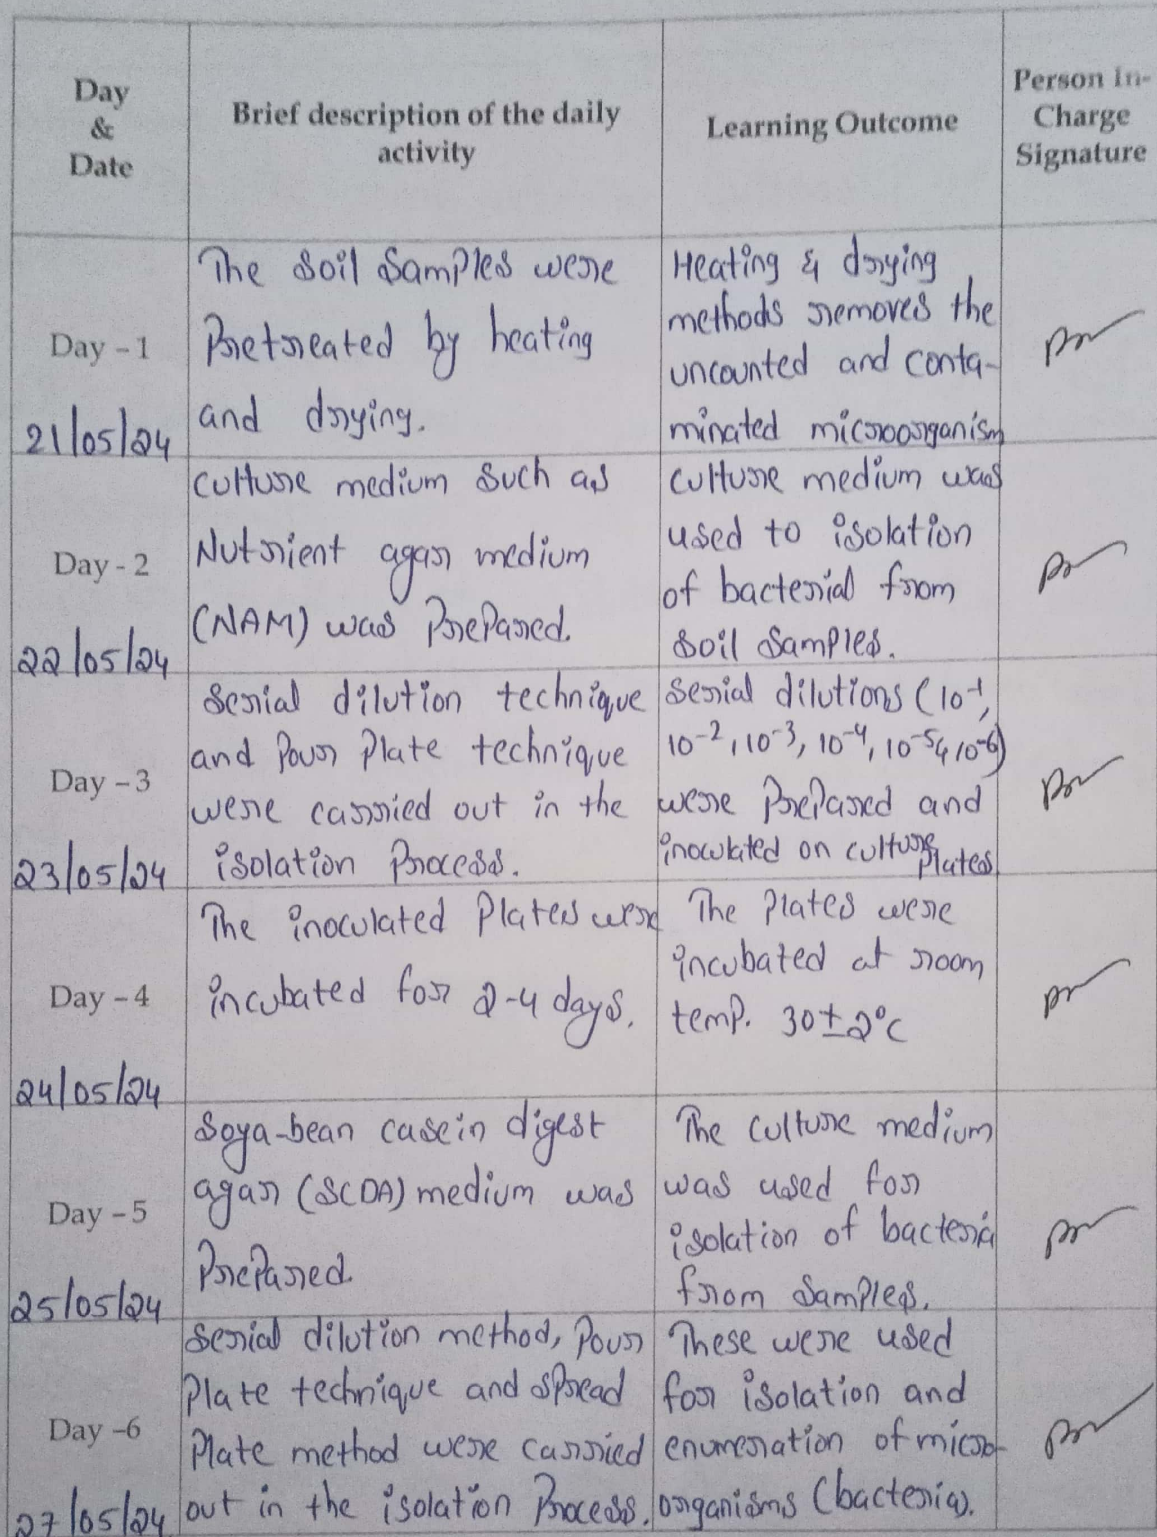 Day
&
Date
Brief description of the daily
activity
Learning Outcome
Person In-
Charge
Signature
Day - 1
21/05/24
The soil samples were
Pretreated by heating
and drying.
Heating & drying
methods removes the
uncounted and conta-
minated microorganism
Day - 2
22/05/24
culture medium such as
Nutrient agar medium
(NAM) was Prepared.
culture medium was
used to isolation
of bacterial from
soil samples.
Day - 3
23/05/24
serial dilution technique
and Pour Plate technique
were carried out in the
isolation Process.
serial dilutions (10⁻¹,
10⁻², 10⁻³, 10⁻⁴, 10⁻⁵ & 10⁻⁶)
were Prepared and
inoculated on culture
Plates
Day - 4
24/05/24
The inoculated Plates were
incubated for 2-4 days.
The Plates were
incubated at room
temp. 30±2°c
Day - 5
25/05/24
Soya-bean casein digest
agar (SCDA) medium was
Prepared.
The culture medium
was used for
isolation of bacteria
from samples.
Day -6
27/05/24
serial dilution method, Pour
Plate technique and spread
Plate method were carried
out in the isolation Process.
These were used
for isolation and
enumeration of micro-
organisms (bacteria).